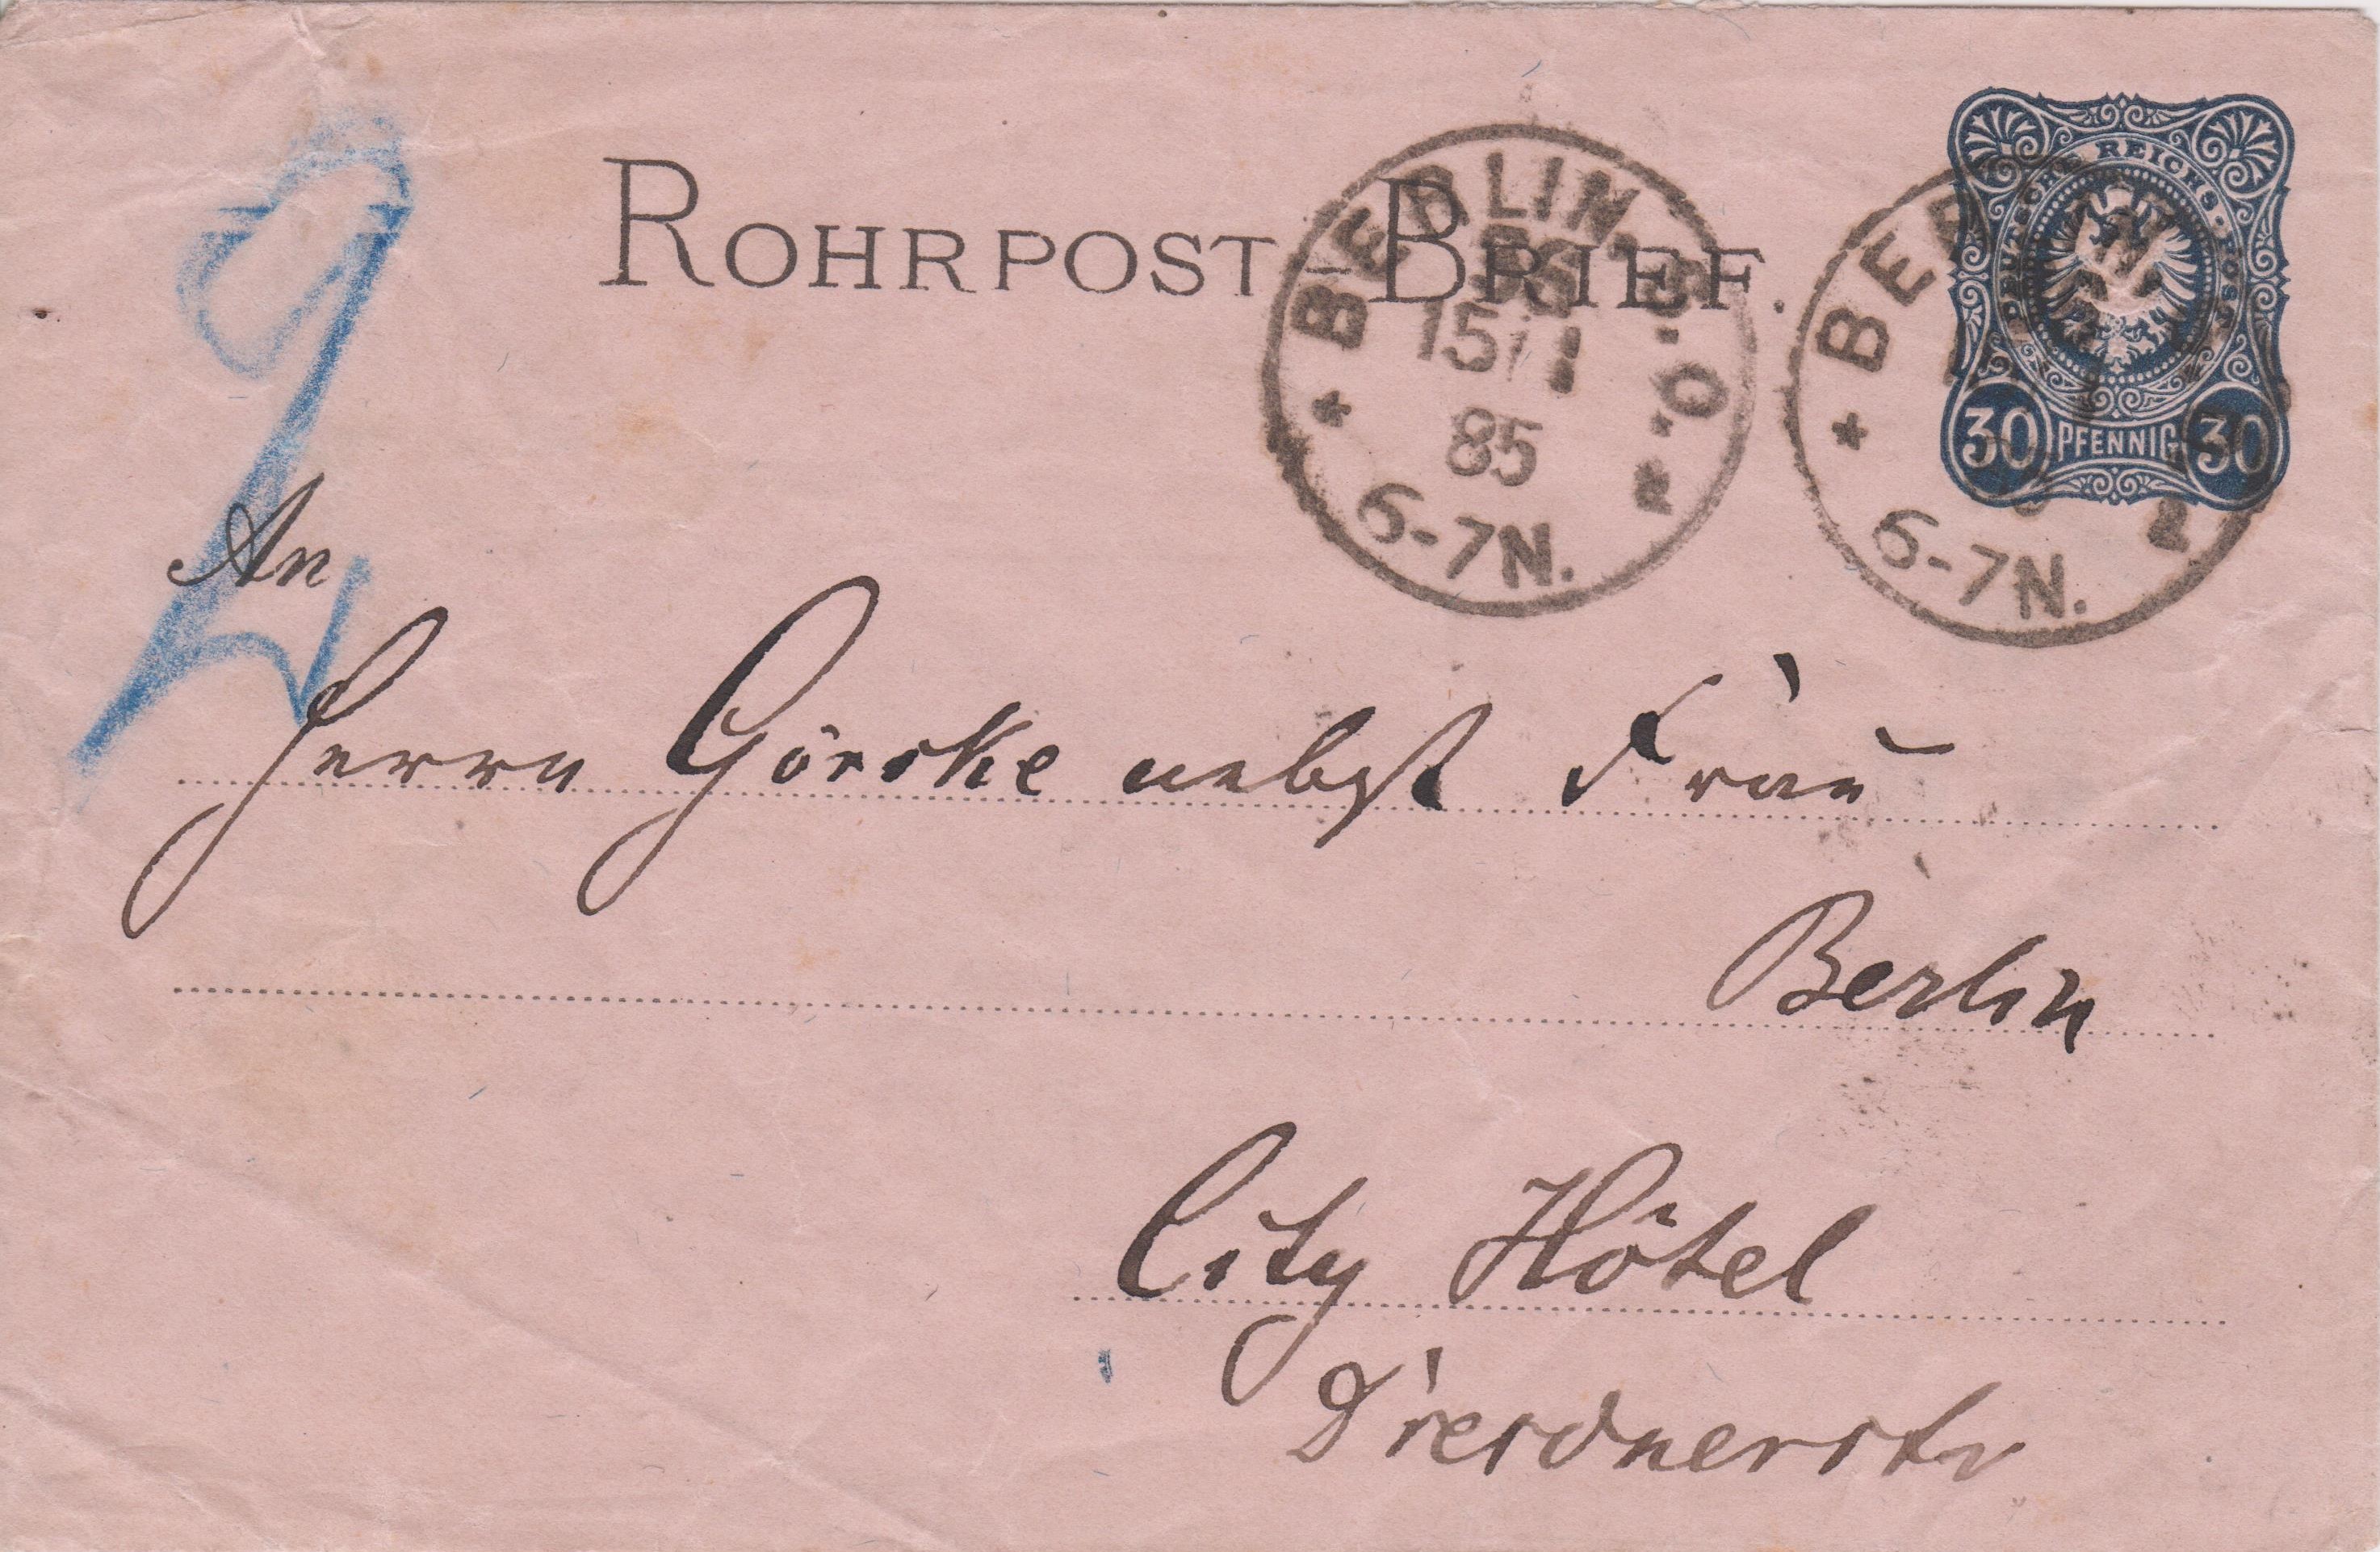 ROHRPOST-BRIEF.
DEUTSCHE REICHS-POST
30 PFENNIG 30
BERLIN, S.O.
36
15/1
85
6-7N.
* 2
BERLIN
* 2
6-7N.
2
An
Herrn Görske nebst Frau
Berlin
City Hôtel
Dresdnerstr